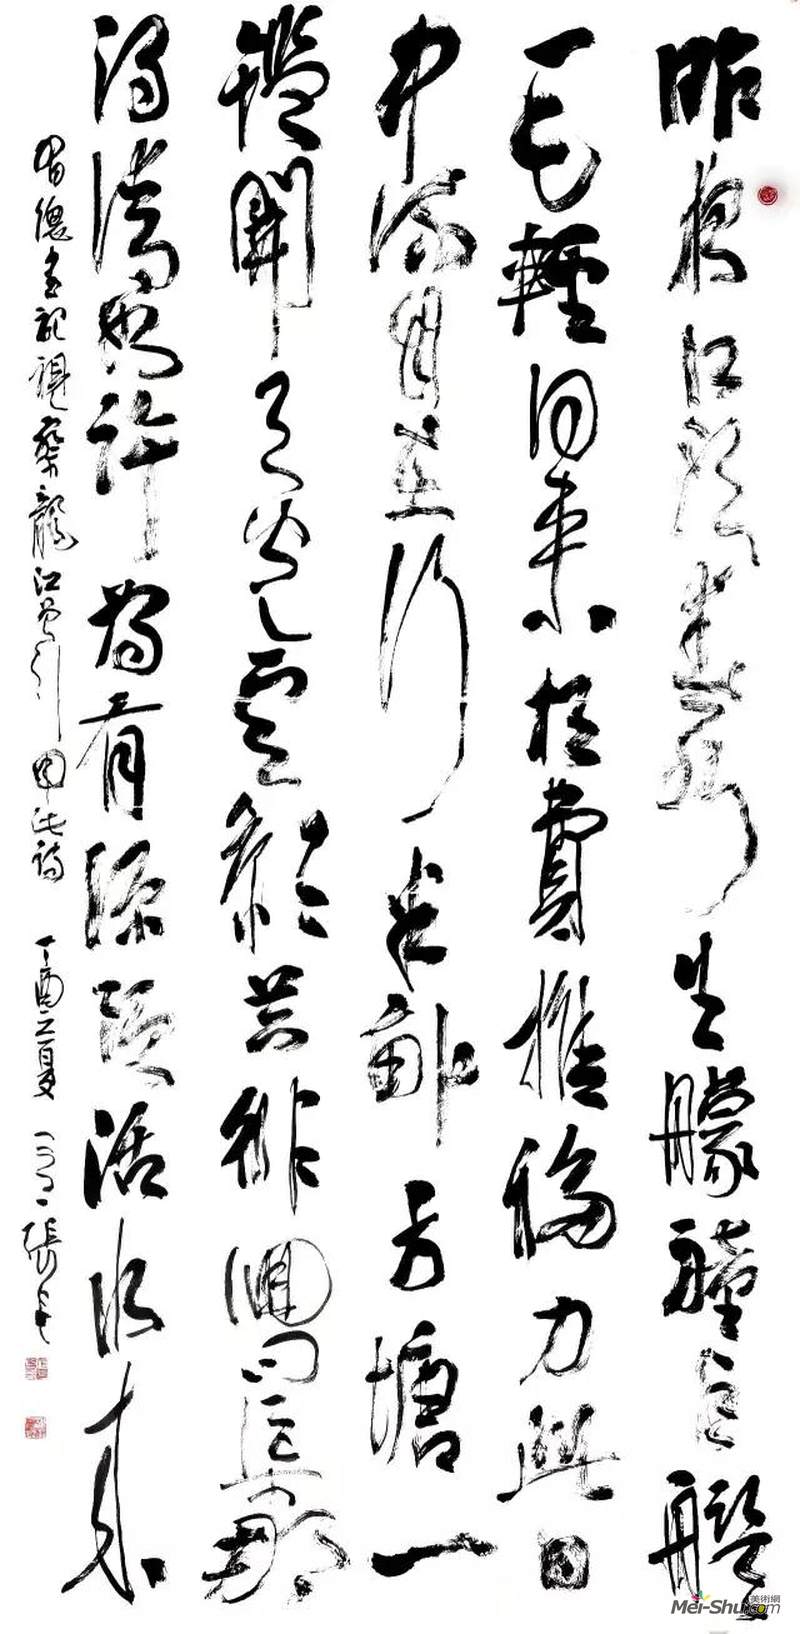 昨夜江邊春水生艨艟巨艦
一毛輕向來枉費推移力此日
中流自在行半畝方塘一
鑑開天光雲影共徘徊問渠那
得清如許為有源頭活水來
習總書記視察龍江曾引用此詩 丁酉立夏 張
美術網
Mei-Shu.com